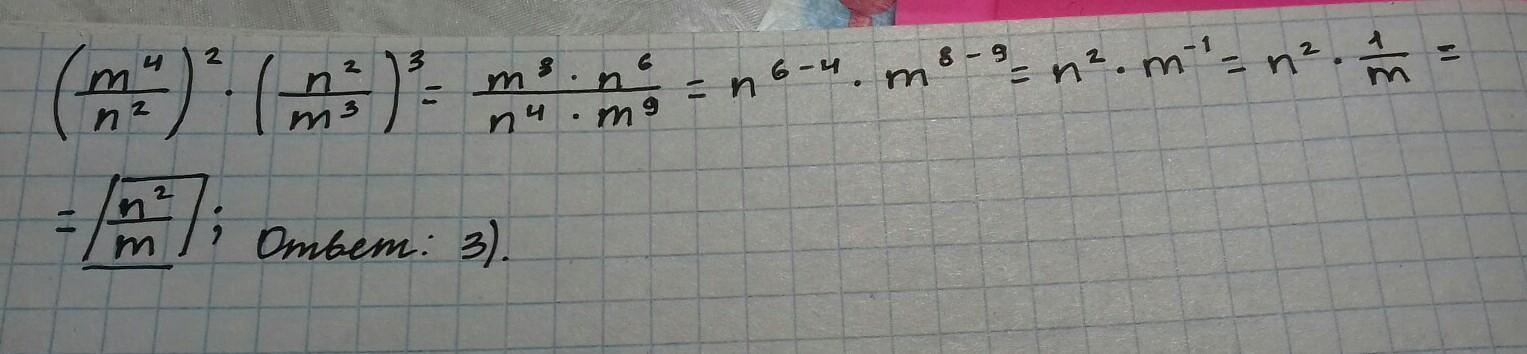 (m⁴/n²)² · (n²/m³)³ = m⁸ · n⁶/n⁴ · m⁹ = n⁶⁻⁴ · m⁸⁻⁹ = n² · m⁻¹ = n² · 1/m =
= n²/m; Ответ: 3).